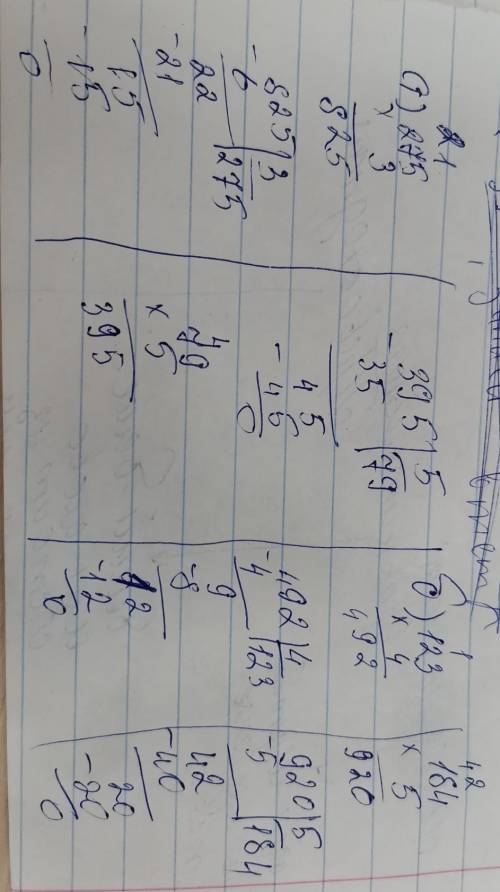 21
а) 275
× 3
825
825 | 3
-6 | 275
22
-21
15
-15
0
395 | 5
-35 | 79
45
-45
0
4
79
× 5
395
1
б) 123
× 4
492
492 | 4
-4 | 123
9
-8
12
-12
0
42
184
× 5
920
920 | 5
-5 | 184
42
-40
20
-20
0